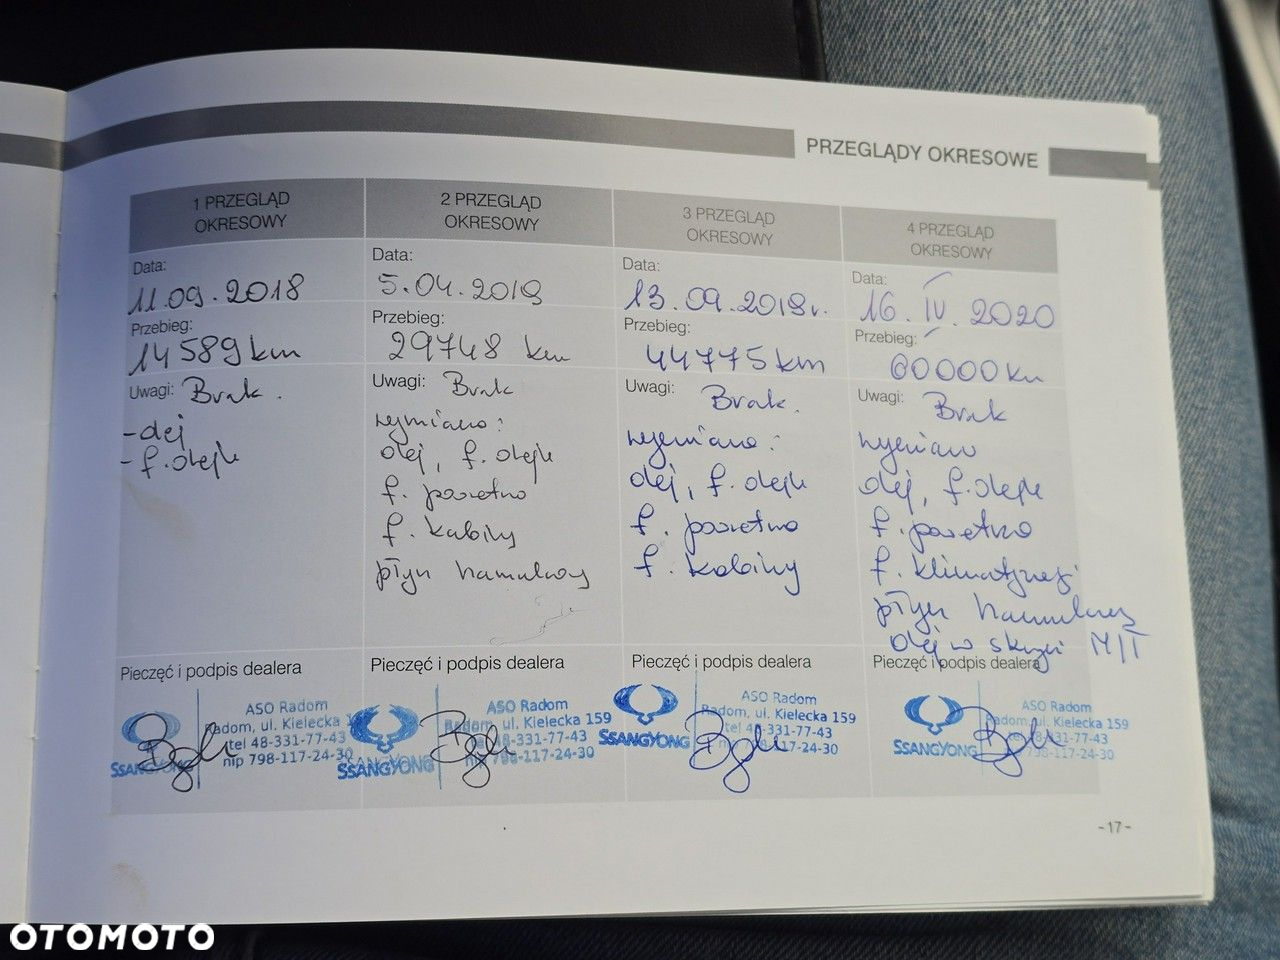 PRZEGLĄDY OKRESOWE
1 PRZEGLĄD
OKRESOWY
Data:
11.09.2018
Przebieg:
14589 km
Uwagi: Brak.
- olej
- f. oleju
Pieczęć i podpis dealera
ASO Radom
Radom, ul. Kielecka 1
tel 48-331-77-43
nip 798-117-24-30
SSANGYONG
2 PRZEGLĄD
OKRESOWY
Data:
5.04.2019
Przebieg:
29748 km
Uwagi: Brak
wymiano:
olej, f. oleju
f. powietrza
f. kabiny
płyn hamulcowy
Pieczęć i podpis dealera
ASO Radom
Radom, ul. Kielecka 159
48-331-77-43
nip 798-117-24-30
SSANGYONG
3 PRZEGLĄD
OKRESOWY
Data:
13.09.2019r.
Przebieg:
44775 km
Uwagi: Brak.
wymiano:
olej, f. oleju
f. powietrza
f. kabiny
Pieczęć i podpis dealera
ASO Radom
Radom, ul. Kielecka 159
48-331-77-43
nip 798-117-24-30
SSANGYONG
4 PRZEGLĄD
OKRESOWY
Data:
16. IV. 2020
Przebieg:
60000 km
Uwagi: Brak
wymiano
olej, f. oleju
f. powietrza
f. klimatyzacji
płyn hamulcowy
olej w skrzyni M/T
Pieczęć i podpis dealera
ASO Radom
Radom, ul. Kielecka 159
48-331-77-43
798-117-24-30
SSANGYONG
-17-
OTOMOTO